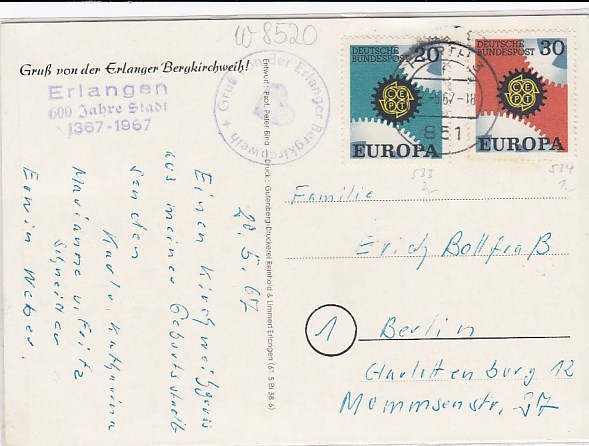 w-8520
Gruß von der Erlanger Bergkirchweih!
Erlangen
600 Jahre Stadt
1367-1967
Gruß von der Erlanger Bergkirchweih +
DEUTSCHE
BUNDESPOST
20
CEPT
EUROPA
DEUTSCHE
BUNDESPOST
30
CEPT
EUROPA
-5.67-18
851
533
2,-
534
1,-
Entwurf: Prof. Peter Bina
Druck: Gutenberg-Druckerei Reinhold & Limmert Erlangen (61 5 Bl 38 6)
20.5.67
Einen Kirchweihgruß
aus meiner Geburtsstadt
senden
Karl u. Katharina
Marianne u. Fritz
Schneider
Erwin Weber.
Familie
Erich Bollfraß
1 Berlin
Charlottenburg 12
Mommsenstr. 27